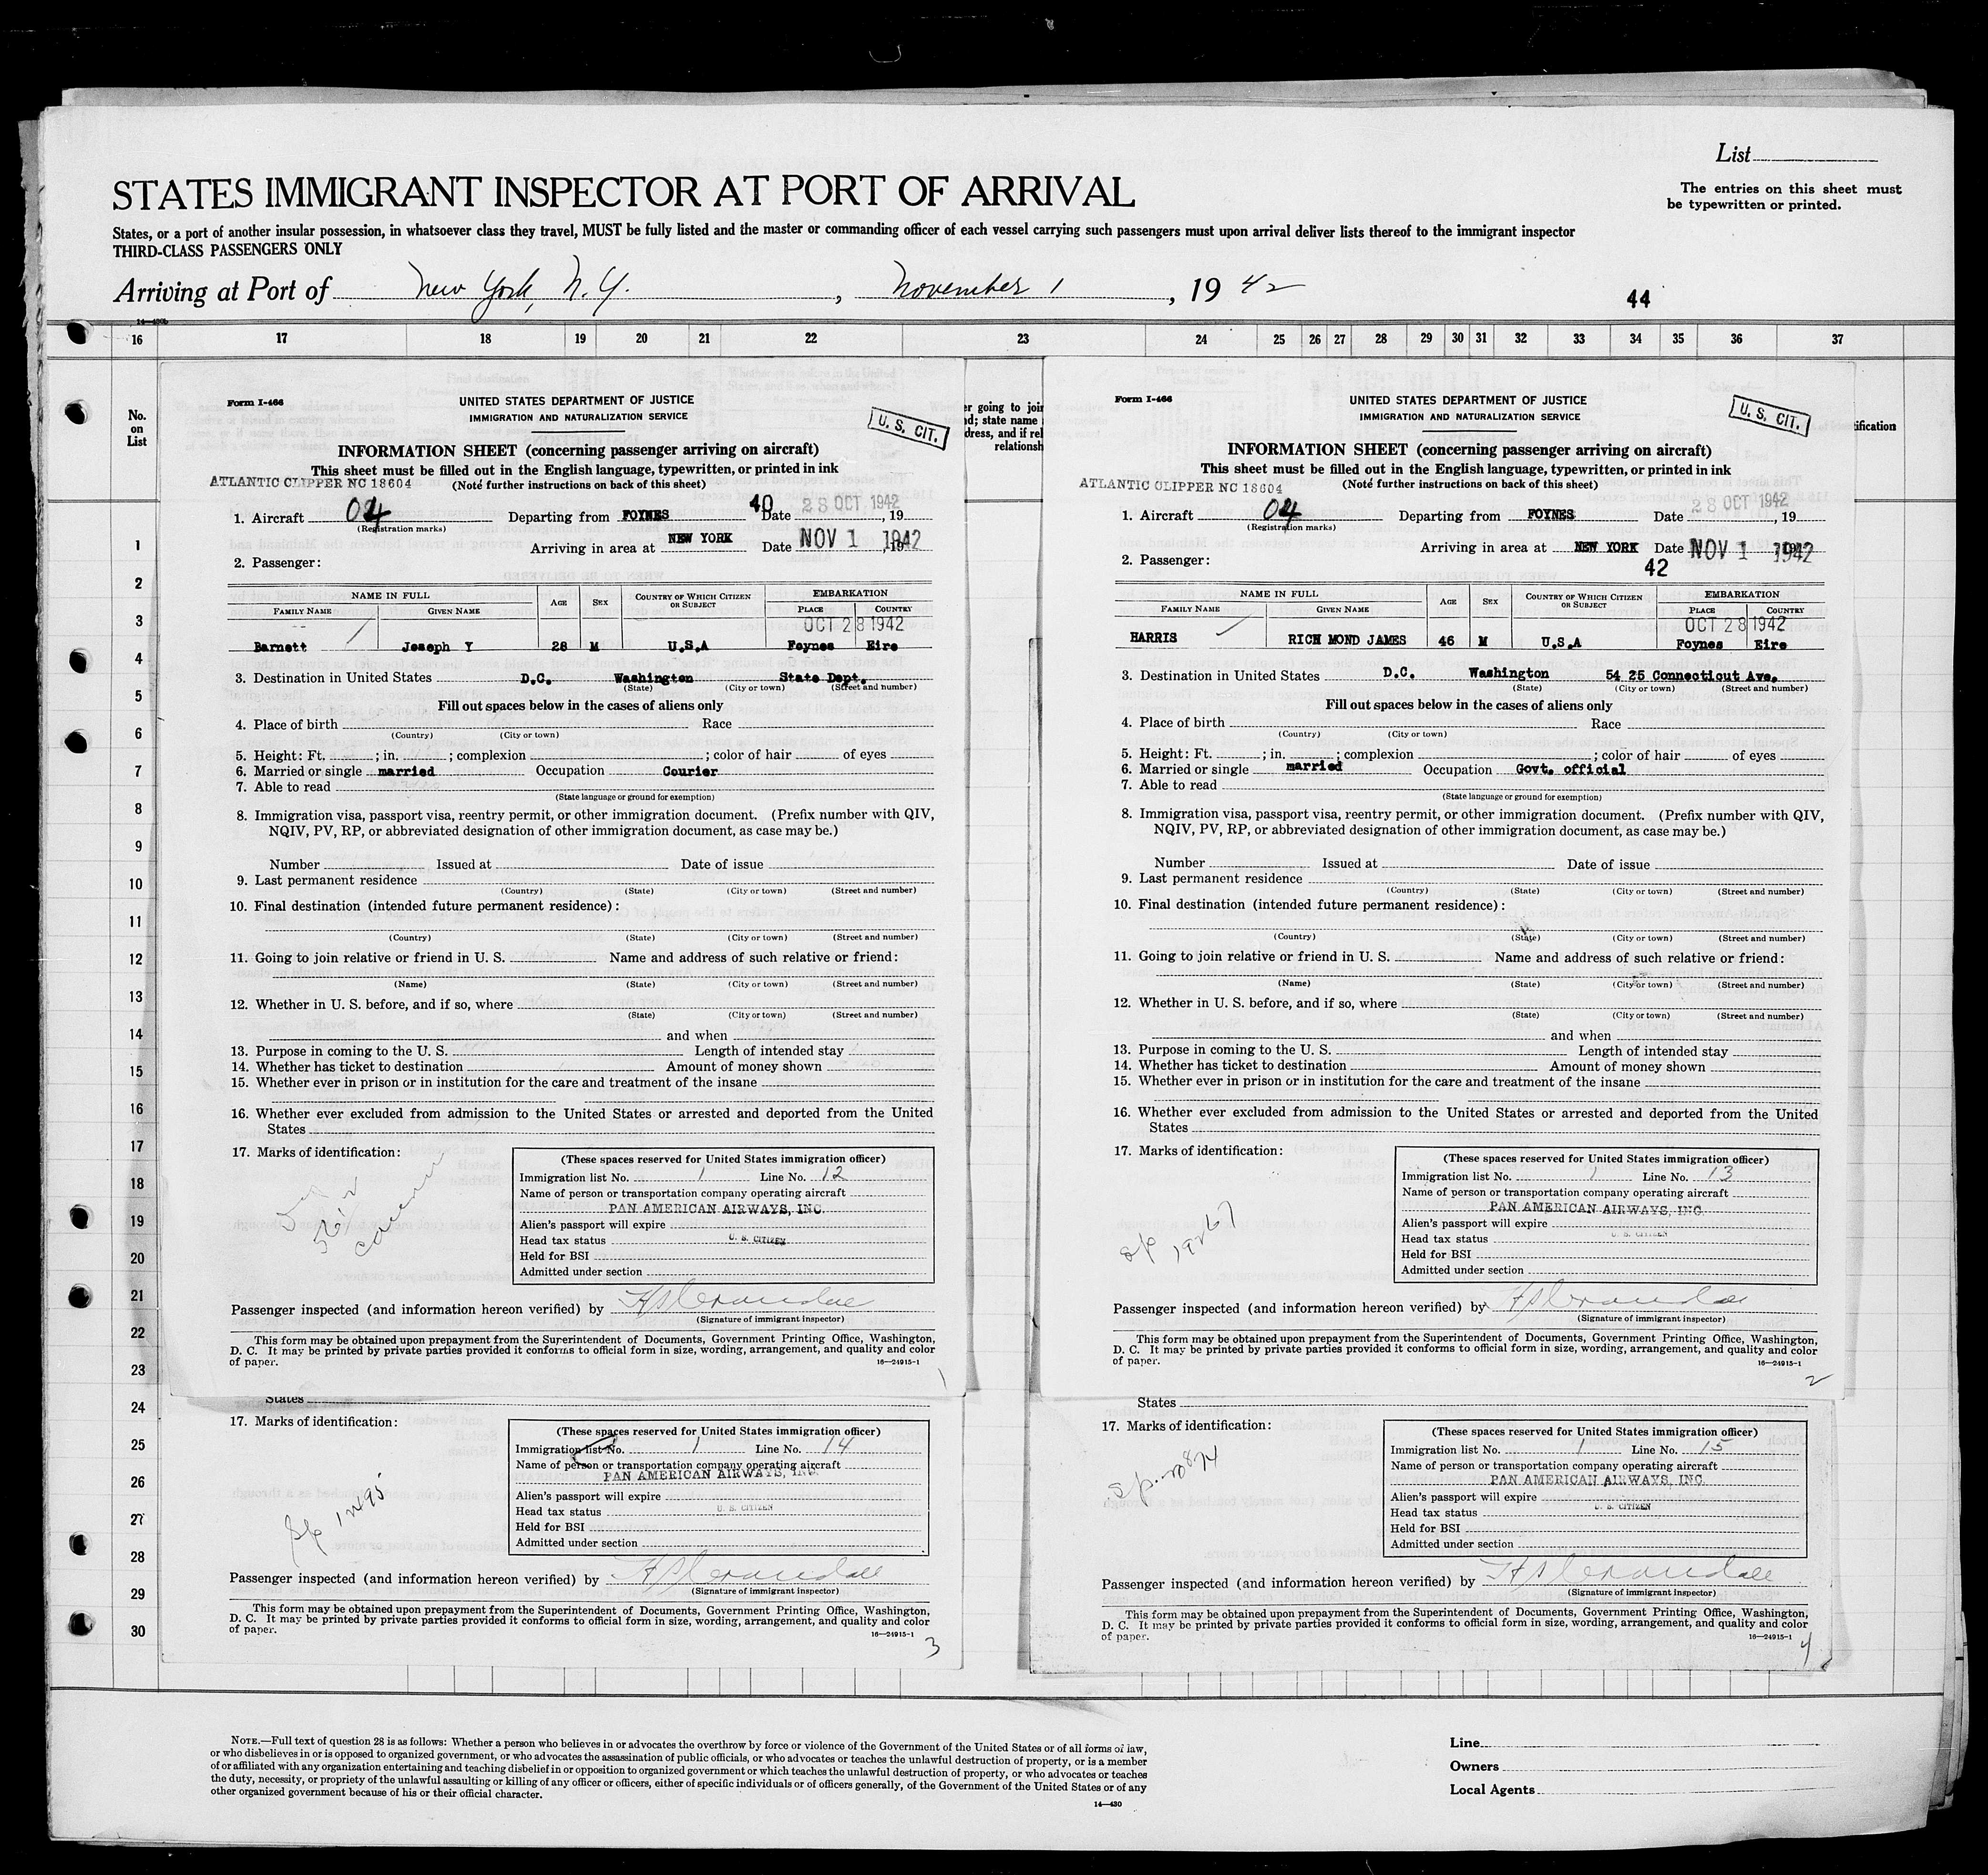 List
STATES IMMIGRANT INSPECTOR AT PORT OF ARRIVAL
The entries on this sheet must
be typewritten or printed.
States, or a port of another insular possession, in whatsoever class they travel, MUST be fully listed and the master or commanding officer of each vessel carrying such passengers must upon arrival deliver lists thereof to the immigrant inspector
THIRD-CLASS PASSENGERS ONLY
Arriving at Port of New York, N.Y., November 1, 1942
44
16 17 18 19 20 21 22 23 24 25 26 27 28 29 30 31 32 33 34 35 36 37
No.
on
List
1
2
3
4
5
6
7
8
9
10
11
12
13
14
15
16
17
18
19
20
21
22
23
24
25
26
27
28
29
30
Form I-466
UNITED STATES DEPARTMENT OF JUSTICE
IMMIGRATION AND NATURALIZATION SERVICE
U. S. CIT.
INFORMATION SHEET (concerning passenger arriving on aircraft)
This sheet must be filled out in the English language, typewritten, or printed in ink
ATLANTIC CLIPPER NC 18604 (Note further instructions on back of this sheet)
1. Aircraft 04 Departing from FOYNES 40 Date 28 OCT 1942, 19
(Registration marks)
Arriving in area at NEW YORK Date NOV 1 1942, 19
2. Passenger:
NAME IN FULL AGE SEX COUNTRY OF WHICH CITIZEN OR SUBJECT EMBARKATION
FAMILY NAME GIVEN NAME PLACE COUNTRY
OCT 28 1942
Barnett Joseph Y 28 M U.S.A Foynes Eire
3. Destination in United States D.C. Washington State Dept.
(State) (City or town) (Street and number)
Fill out spaces below in the cases of aliens only
4. Place of birth Race
(Country) (City or town)
5. Height: Ft. ; in. ; complexion ; color of hair of eyes
6. Married or single married Occupation Courier
7. Able to read
(State language or ground for exemption)
8. Immigration visa, passport visa, reentry permit, or other immigration document. (Prefix number with QIV,
NQIV, PV, RP, or abbreviated designation of other immigration document, as case may be.)
Number Issued at Date of issue
9. Last permanent residence
(Country) (State) (City or town) (Street and number)
10. Final destination (intended future permanent residence):
(Country) (State) (City or town) (Street and number)
11. Going to join relative or friend in U. S. Name and address of such relative or friend:
(Name) (State) (City or town) (Street and number)
12. Whether in U. S. before, and if so, where
(State) (City or town) (Street and number)
and when
13. Purpose in coming to the U. S. Length of intended stay
14. Whether has ticket to destination Amount of money shown
15. Whether ever in prison or in institution for the care and treatment of the insane
16. Whether ever excluded from admission to the United States or arrested and deported from the United
States
17. Marks of identification:
(These spaces reserved for United States immigration officer)
Immigration list No. 1 Line No. 12
Name of person or transportation company operating aircraft
PAN AMERICAN AIRWAYS, INC.
Alien's passport will expire
Head tax status U. S. CITIZEN
Held for BSI
Admitted under section
Passenger inspected (and information hereon verified) by
(Signature of immigrant inspector)
This form may be obtained upon prepayment from the Superintendent of Documents, Government Printing Office, Washington,
D. C. It may be printed by private parties provided it conforms to official form in size, wording, arrangement, and quality and color
of paper.
16—24915-1
1
er going to join
nd; state name
dress, and if rel
relationsh
Form I-466
UNITED STATES DEPARTMENT OF JUSTICE
IMMIGRATION AND NATURALIZATION SERVICE
U. S. CIT.
INFORMATION SHEET (concerning passenger arriving on aircraft)
This sheet must be filled out in the English language, typewritten, or printed in ink
ATLANTIC CLIPPER NC 18604 (Note further instructions on back of this sheet)
1. Aircraft 04 Departing from FOYNES Date 28 OCT 1942, 19
(Registration marks)
Arriving in area at NEW YORK Date NOV 1 1942
2. Passenger: 42
NAME IN FULL AGE SEX COUNTRY OF WHICH CITIZEN OR SUBJECT EMBARKATION
FAMILY NAME GIVEN NAME PLACE COUNTRY
OCT 28 1942
HARRIS RICH MOND JAMES 46 M U.S.A Foynes Eire
3. Destination in United States D.C. Washington 54 25 Connecticut Ave.
(State) (City or town) (Street and number)
Fill out spaces below in the cases of aliens only
4. Place of birth Race
(Country) (City or town)
5. Height: Ft. ; in. ; complexion ; color of hair of eyes
6. Married or single married Occupation Govt. official
7. Able to read
(State language or ground for exemption)
8. Immigration visa, passport visa, reentry permit, or other immigration document. (Prefix number with QIV,
NQIV, PV, RP, or abbreviated designation of other immigration document, as case may be.)
Number Issued at Date of issue
9. Last permanent residence
(Country) (State) (City or town) (Street and number)
10. Final destination (intended future permanent residence):
(Country) (State) (City or town) (Street and number)
11. Going to join relative or friend in U. S. Name and address of such relative or friend:
(Name) (State) (City or town) (Street and number)
12. Whether in U. S. before, and if so, where
(State) (City or town) (Street and number)
and when
13. Purpose in coming to the U. S. Length of intended stay
14. Whether has ticket to destination Amount of money shown
15. Whether ever in prison or in institution for the care and treatment of the insane
16. Whether ever excluded from admission to the United States or arrested and deported from the United
States
17. Marks of identification:
19267
(These spaces reserved for United States immigration officer)
Immigration list No. 1 Line No. 13
Name of person or transportation company operating aircraft
PAN AMERICAN AIRWAYS, INC.
Alien's passport will expire
Head tax status U. S. CITIZEN
Held for BSI
Admitted under section
Passenger inspected (and information hereon verified) by
(Signature of immigrant inspector)
This form may be obtained upon prepayment from the Superintendent of Documents, Government Printing Office, Washington,
D. C. It may be printed by private parties provided it conforms to official form in size, wording, arrangement, and quality and color
of paper.
16—24915-1
2
ification
States
17. Marks of identification:
(These spaces reserved for United States immigration officer)
Immigration list No. 1 Line No. 14
Name of person or transportation company operating aircraft
PAN AMERICAN AIRWAYS, INC.
Alien's passport will expire
Head tax status U. S. CITIZEN
Held for BSI
Admitted under section
Passenger inspected (and information hereon verified) by
(Signature of immigrant inspector)
This form may be obtained upon prepayment from the Superintendent of Documents, Government Printing Office, Washington,
D. C. It may be printed by private parties provided it conforms to official form in size, wording, arrangement, and quality and color
of paper.
16—24915-1
3
States
17. Marks of identification:
(These spaces reserved for United States immigration officer)
Immigration list No. 1 Line No. 15
Name of person or transportation company operating aircraft
PAN AMERICAN AIRWAYS, INC.
Alien's passport will expire
Head tax status U. S. CITIZEN
Held for BSI
Admitted under section
Passenger inspected (and information hereon verified) by
(Signature of immigrant inspector)
This form may be obtained upon prepayment from the Superintendent of Documents, Government Printing Office, Washington,
D. C. It may be printed by private parties provided it conforms to official form in size, wording, arrangement, and quality and color
of paper.
16—24915-1
4
NOTE.—Full text of question 28 is as follows: Whether a person who believes in or advocates the overthrow by force or violence of the Government of the United States or of all forms of law,
or who disbelieves in or is opposed to organized government, or who advocates the assassination of public officials, or who advocates or teaches the unlawful destruction of property, or is a member
of or affiliated with any organization entertaining and teaching disbelief in or opposition to organized government or which teaches the unlawful destruction of property, or who advocates or teaches
the duty, necessity, or propriety of the unlawful assaulting or killing of any officer or officers, either of specific individuals or of officers generally, of the Government of the United States or of any
other organized government because of his or their official character.
14—430
Line
Owners
Local Agents